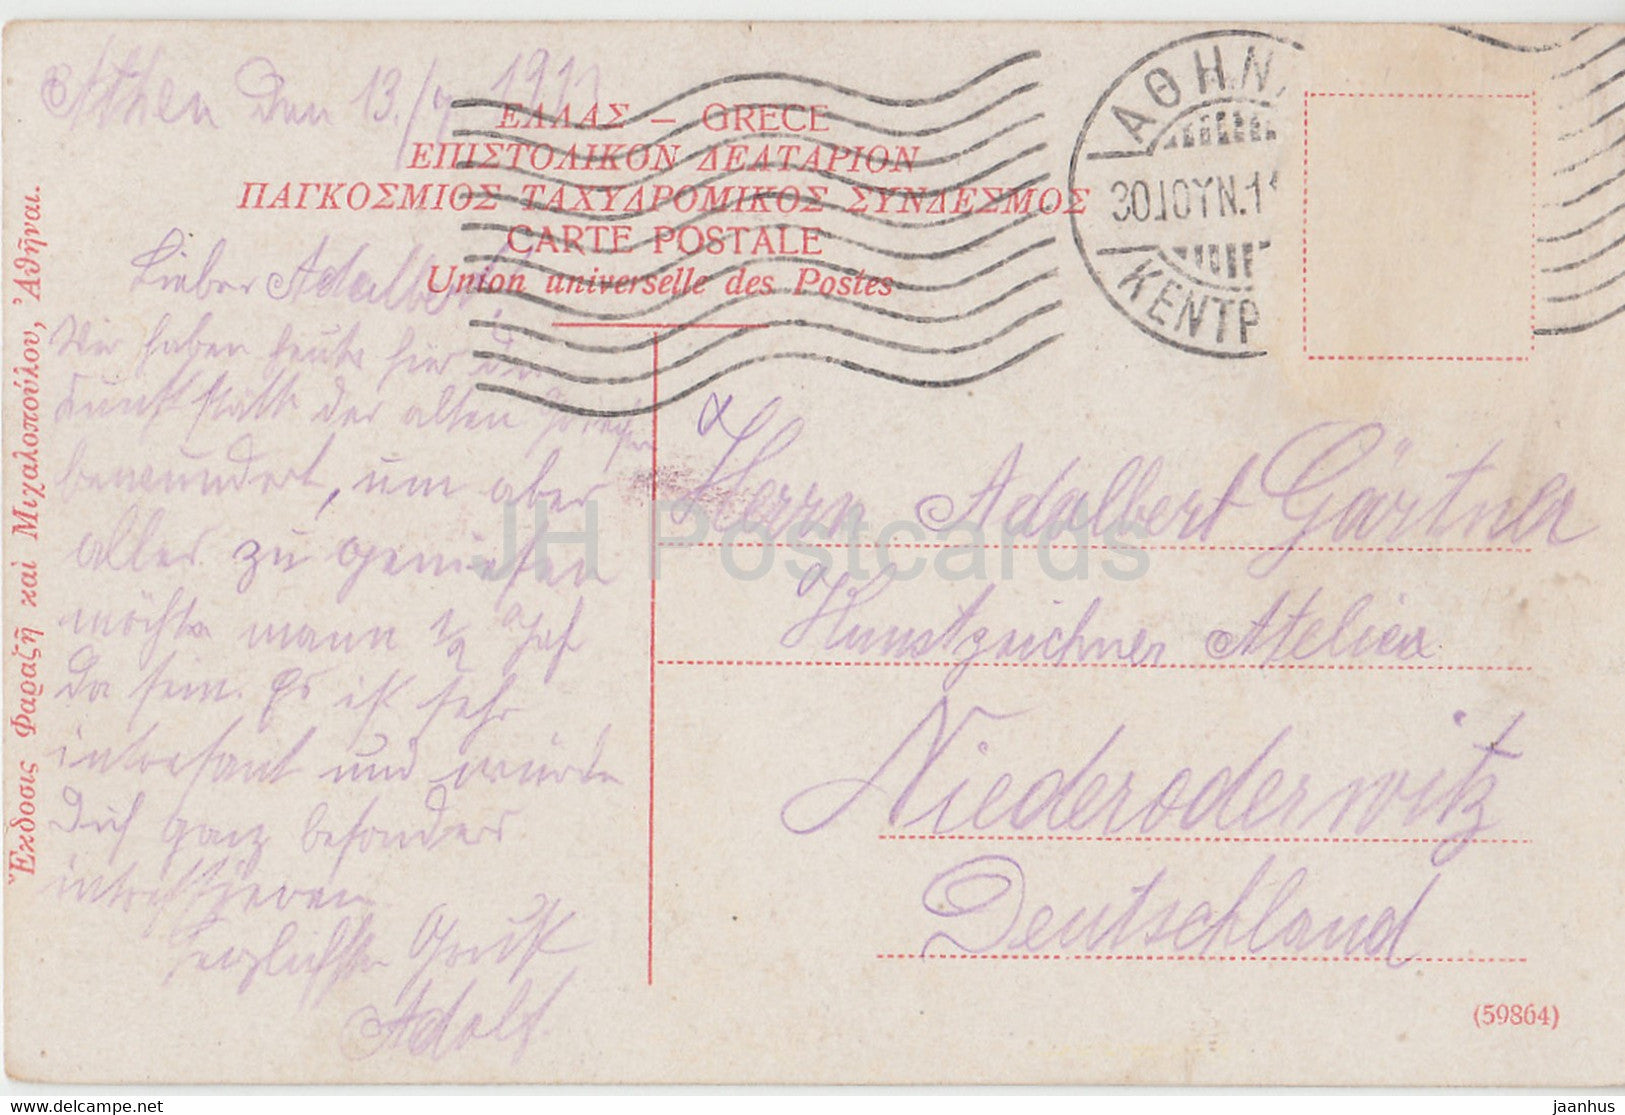 Athen den 13./7. 191
ΕΛΛΑΣ – GRÈCE
ΕΠΙΣΤΟΛΙΚΟΝ ΔΕΛΤΑΡΙΟΝ
ΠΑΓΚΟΣΜΙΟΣ ΤΑΧΥΔΡΟΜΙΚΟΣ ΣΥΝΔΕΣΜΟΣ
CARTE POSTALE
Union universelle des Postes
ΑΘΗΝ.
30 ΙΟΥΝ. 11
ΚΕΝΤΡ
Ἔκδοσις Φαραζῆ καὶ Μιχαλοπούλου, Ἀθῆναι.
Lieber Adalbert
Wir haben heute hier d
Kunststätte der alten Griechen
bewundert, um aber
alles zu geniesen
möchte mann ½ Jahr
da sein. Es ist sehr
intresant und würde
Dich ganz besonders
intressieren
herzlichsten Gruß
Adolf.
Herrn Adalbert Gärtner
Kunstzeichner Atelier
Niederoderwitz
Deutschland
(59864)
JH Postcards
delcampe.net
jaanhus